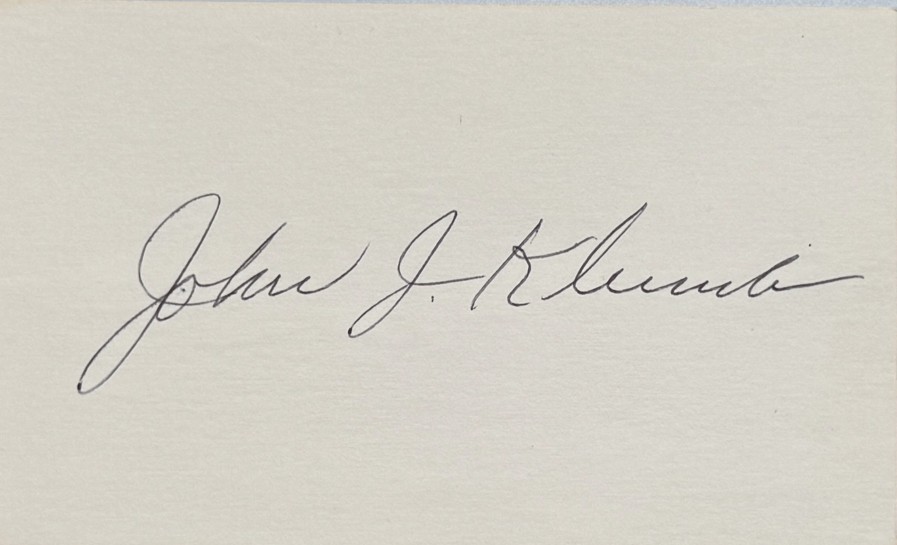 John J. Klumb